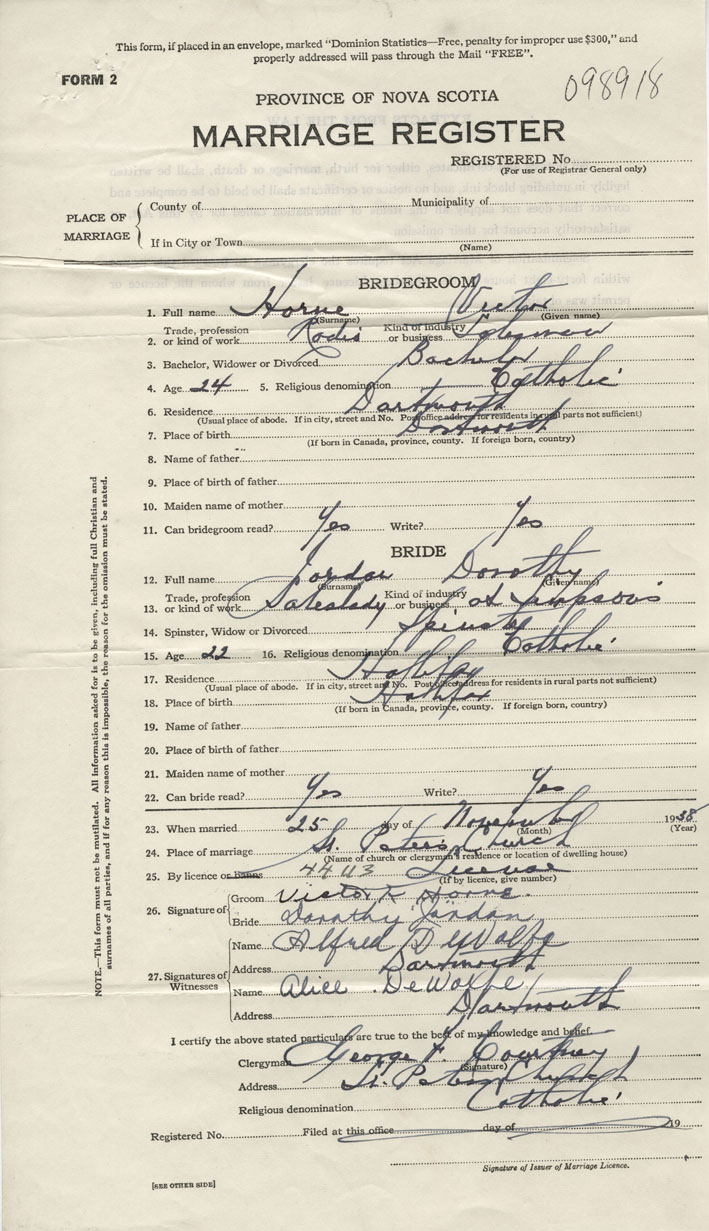 This form, if placed in an envelope, marked "Dominion Statistics—Free, penalty for improper use $300," and
properly addressed will pass through the Mail "FREE".
FORM 2
098918
PROVINCE OF NOVA SCOTIA
MARRIAGE REGISTER
REGISTERED No.
(For use of Registrar General only)
PLACE OF MARRIAGE
County of Municipality of
If in City or Town
(Name)
BRIDEGROOM
1. Full name Horne Victor
(Surname) (Given name)
2. Trade, profession or kind of work Radio Kind of industry or business
3. Bachelor, Widower or Divorced Bachelor
4. Age 24 5. Religious denomination Catholic
6. Residence Dartmouth
(Usual place of abode. If in city, street and No. Post office address for residents in rural parts not sufficient)
7. Place of birth Dartmouth
(If born in Canada, province, county. If foreign born, country)
8. Name of father
9. Place of birth of father
10. Maiden name of mother
11. Can bridegroom read? Yes Write? Yes
BRIDE
12. Full name Jordan Dorothy
(Surname) (Given name)
13. Trade, profession or kind of work Saleslady Kind of industry or business at Simpsons
14. Spinster, Widow or Divorced Spinster
15. Age 22 16. Religious denomination Catholic
17. Residence Halifax
(Usual place of abode. If in city, street and No. Post office address for residents in rural parts not sufficient)
18. Place of birth Halifax
(If born in Canada, province, county. If foreign born, country)
19. Name of father
20. Place of birth of father
21. Maiden name of mother
22. Can bride read? Yes Write? Yes
23. When married 25 day of November 1938
(Month) (Year)
24. Place of marriage St. Peters Church
(Name of church or clergyman's residence or location of dwelling house)
25. By licence or banns License
(If by licence, give number)
26. Signature of
Groom Victor Horne
Bride Dorothy Jordan
27. Signatures of Witnesses
Name Alfred DeWolfe
Address Dartmouth
Name Alice DeWolfe
Address Dartmouth
I certify the above stated particulars are true to the best of my knowledge and belief.
Clergyman George F. Courtney
(Signature)
Address St. Peters Church
Religious denomination Catholic
Registered No. Filed at this office day of 19
Signature of Issuer of Marriage Licence.
[SEE OTHER SIDE]
NOTE.—This form must not be mutilated. All information asked for is to be given, including full Christian and
surnames of all parties, and if for any reason this is impossible, the reason for the omission must be stated.